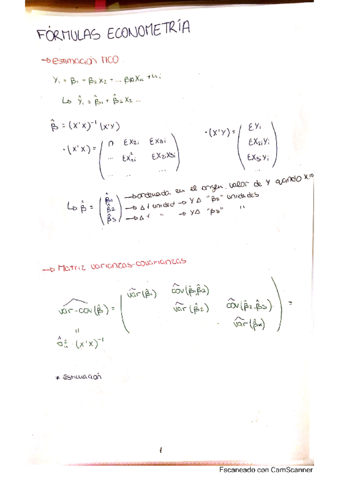 FÓRMULAS ECONOMETRÍA
→ estimación MCO
Yi = β1 - β2X2 - ... βkXk + ui
↳ Ŷi = β̂1 + β̂2X2 ...
β̂ = (X'X)⁻¹ (X'Y)
· (X'X) = ( n ΣX2i ΣX3i
... ΣX²2i ΣX2iX3i
... ... )
· (X'Y) = ( ΣYi
ΣX2iYi
ΣX3iYi )
↳ β̂ = ( β̂1 → ordenada en el origen. valor de Y cuando X=
β̂2 → Δ 1 unidad → YΔ "β2" unidades
β̂3 ) → Δ 1 " → YΔ "β3" "
→ Matriz varianzas-covarianzas
var-cov(β̂) = ( var(β̂1) cov(β̂1β̂2)
var(β̂2) cov(β̂2,β̂3) ) =
var(β̂k)
"
σ̂² · (X'X)⁻¹
* estimación
1
Escaneado con CamScanner